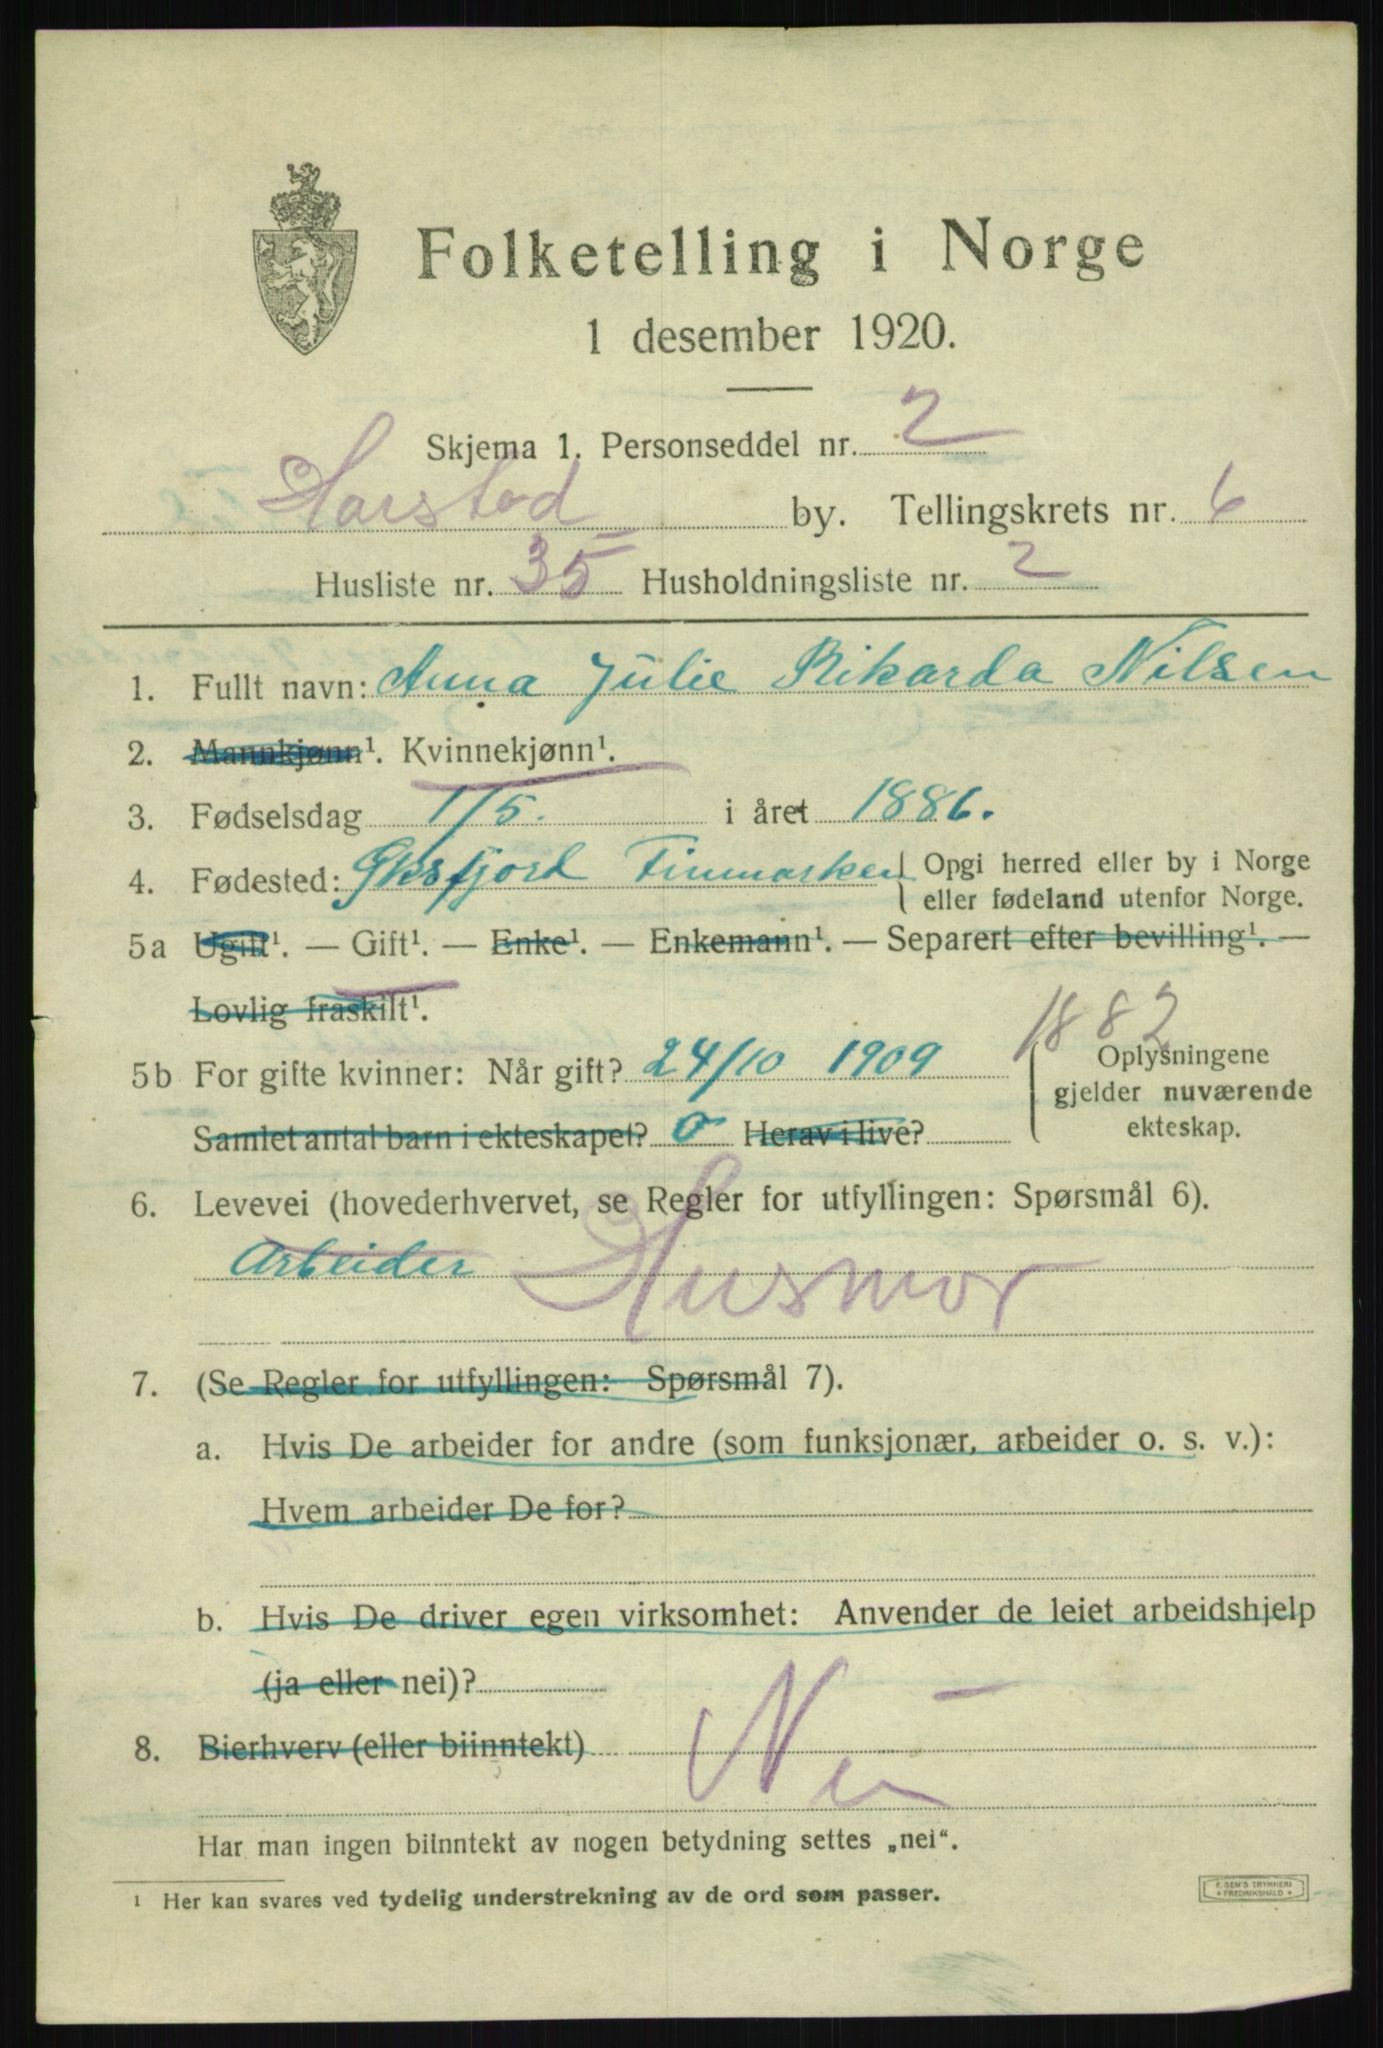 Folketelling i Norge
1 desember 1920.
Skjema 1. Personseddel nr. 2
Harstad by. Tellingskrets nr. 6
Husliste nr. 35 Husholdningsliste nr. 2
1. Fullt navn: Anna Julie Rikarda Nilsen
2. Mannkjønn¹. Kvinnekjønn¹.
3. Fødselsdag 1/5. i året 1886.
4. Fødested: Øksfjord Finmarken { Opgi herred eller by i Norge
eller fødeland utenfor Norge.
5a Ugift¹. — Gift¹. — Enke¹. — Enkemann¹. — Separert efter bevilling¹. —
Lovlig fraskilt¹.
1882
5b For gifte kvinner: Når gift? 24/10 1909 { Oplysningene
gjelder nuværende
Samlet antal barn i ekteskapet? 0 Herav i live? ekteskap.
6. Levevei (hovederhvervet, se Regler for utfyllingen: Spørsmål 6).
Arbeider Husmor
7. (Se Regler for utfyllingen: Spørsmål 7).
a. Hvis De arbeider for andre (som funksjonær, arbeider o. s. v.):
Hvem arbeider De for?
b. Hvis De driver egen virksomhet: Anvender de leiet arbeidshjelp
(ja eller nei)?
8. Bierhverv (eller biinntekt) Nei
Har man ingen biinntekt av nogen betydning settes „nei“.
¹ Her kan svares ved tydelig understrekning av de ord som passer.
E. SEM'S TRYKKERI
* FREDRIKSHALD *